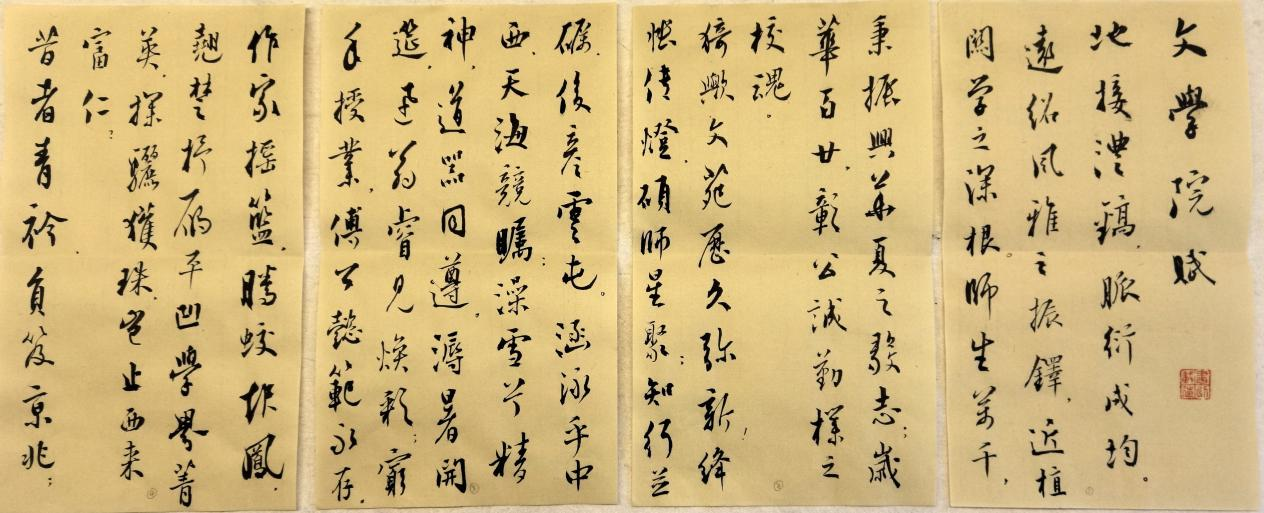 文學院賦
地接澧鎬，脈衍成均。
遠紹風雅之振鐸，近植
關学之深根。師生萬千，
秉振興華夏之毅志；歲
華百廿，彰公誠勤樸之
校魂。
猗歟文苑，歷久弥新！絳
帳傳燈，碩師星聚；知行並
礪，後彥雲屯。涵泳乎中
西，天海競矚；澡雪兮精
神，道器同遵。溽暑開
筵，迅翁睿見煥彩；窮
年授業，傅公懿範永存。
作家摇籃，騰蛟起鳳，
翹楚抒雁平凹；學界菁
英，探驪獲珠，豈止西来
富仁；
昔者青衿負笈京兆；